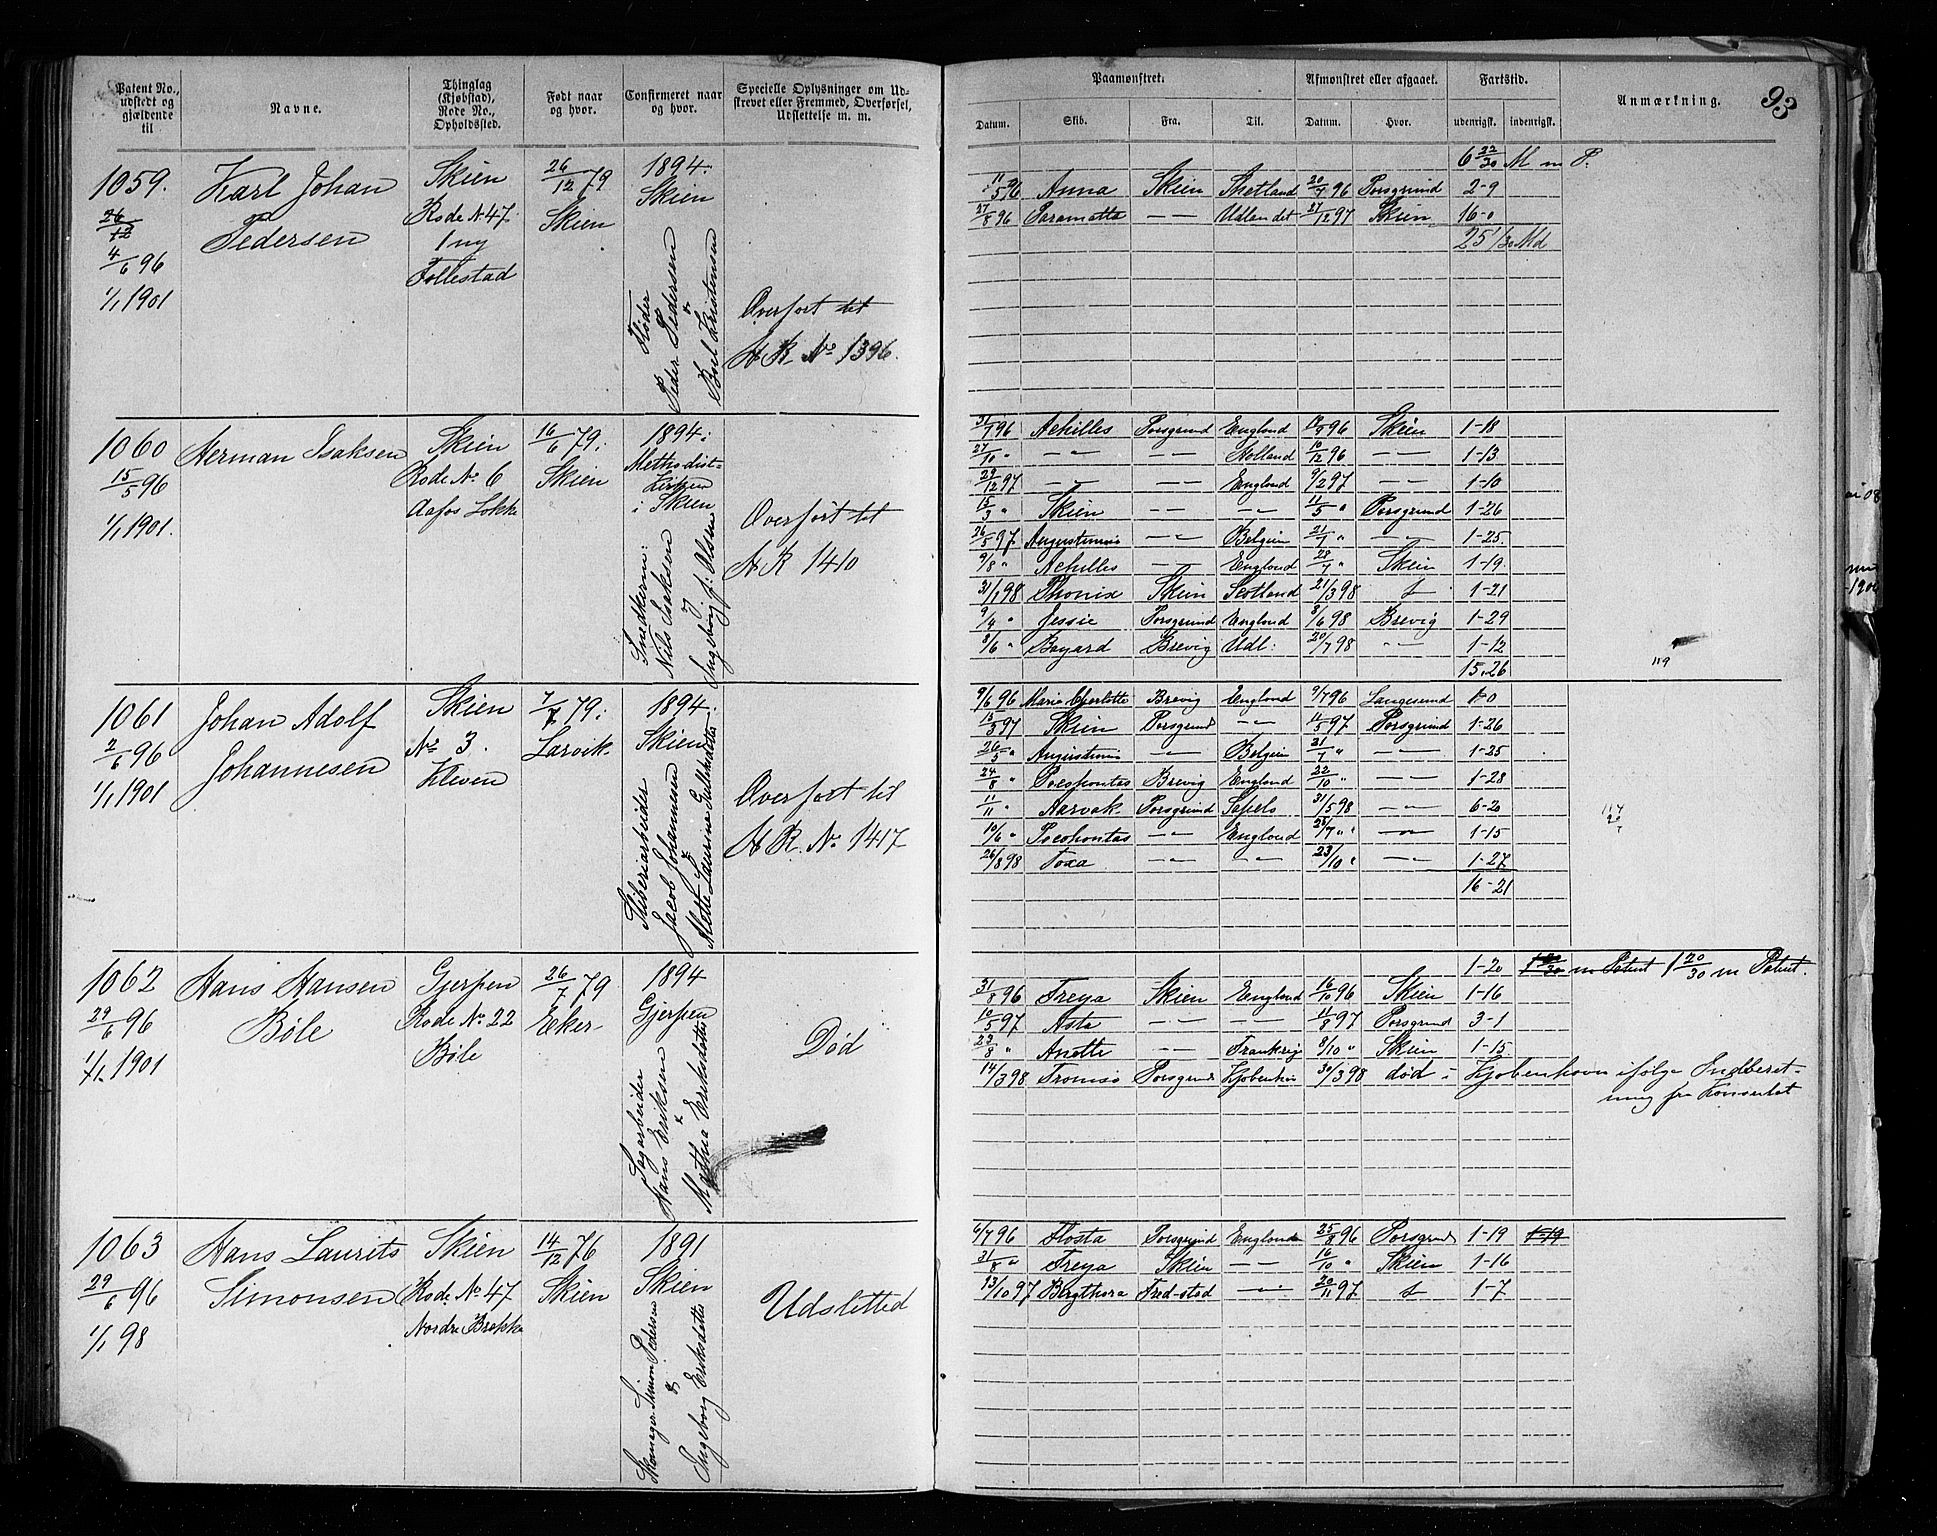 Patent No., udstedt og gjældende til
Navne.
Thinglag (Kjøbstad), Rode No., Opholdssted.
Født naar og hvor.
Confirmeret naar og hvor.
Specielle Oplysninger om Udskrevet eller Fremmed, Overførsel, Udslettelse m. m.
Paamønstret.
Afmønstret eller afgaaet.
Fartstid.
Anmærkning.
93
Datum. Skib. Fra: Til. Datum. Hvor. udenrigsk. indenrigsk.
1059.
26/12
4/6 96
1/1 1901
Karl Johan
Pedersen
Skien
Rode No 47
1 ny
Follestad
26/12 79
Skien
1894.
Skien
Peder Pedersen
&
Kristensen
Overført til
H R No 1396.
6 22/30 M m P.
11/5 96 Anna Skien Shetland 20/7 96 Porsgrund 2-9
27/8 96 Paramatta — Udlandet 27/12 97 Skien 16-0
25 1/30 Md
1060
15/5 96
1/1 1901.
Herman Isaksen
Skien
Rode No 6
Aafos Løkke
16/6 79.
Skien
1894:
Methodist-
kirken
i Skien
Snedkerm:
Nils Isaksen
Ingeborg f: Olsen
Overført til
H R 1410
Achilles Porsgrund England 96 Skien 1-18
27/10 " — — Holland 10/12 96 1-13
29/12 97 — — England 9/2 97 — 1-10
15/3 " Skien — — 11/5 " Porsgrund 1-26
26/5 97 Augustinus — Belgien 21/7 " — 1-25
9/8 " Achilles — England 28/7 " Skien 1-19
31/1 98 Phønix Skien Scotland 21/3 98 1-21
9/4 " Jessie Porsgrund England 8/6 98 Brevig 1-29
8/6 " Bayard Brevig Udl: 20/7 98 — 1-12
15.26
119
1061
2/6 96
1/1 1901
Johan Adolf
Johannesen
Skien
No 3.
Kleven
7/7 79:
Larvik.
1894.
Skien
Sliberiarbeider
Jacob Johannesen
&
Mette Laurine Gullhaldatter
Overført til
H R. No 1417
9/6 96 Maria Charlotte Brevig England 9/7 96 Langesund 1-0
15/3 97 Skien Porsgrund — 11/5 97 Porsgrund 1-26
26/5 " Augustinus — Belgien 21/7 " — 1-25
24/8 " Pocohontas Brevig England 22/10 " — 1-28
11/11 " Aarvak Porsgrund 31/5 98 — 6-20
10/6 " Pocohontas — England 25/7 " — 1-15
26/8 98 Toxa — — 23/10 " — 1-27
16-21
1062
29/6 96
1/1 1901
Hans Hansen
Bøle
Gjerpen
Rode No 22
Bøle
26/7 79
Eker
1894
Gjerpen
Sagarbeider
Hans Eriksen
&
Mathea Eriksdatter
Død
1-20 1 20/30 m Patent 1 20/30 m Patent.
31/8 96 Freya Skien England 16/10 96 Skien 1-16
10/5 97 Asta — — 11/8 97 Porsgrund 3-1
23/8 " Anette — Frankrig 8/10 " Skien 1-15
14/3 98 Tromsø Porsgrund Kjøbenhavn 30/3 98 død i Kjøbenhavn ifølge Indberet-
ning fra Konsulat
1063
29/6 96
1/1 98
Hans Laurits
Simonsen
Skien
Rode No 47
Nordre Brekke
14/12 76
Skien
1891
Skien
Skomager Simon Pedersen
&
Ingeborg Eriksdatter
Udsletted
6/7 96 Flosta Porsgrund England 25/8 96 Porsgrund 1-19 1-19
31/8 " Freya Skien — 16/10 " Skien 1-16
13/10 97 Bergthora Fred-stad — 20/11 97 1-7